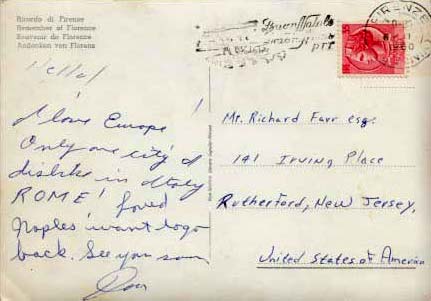 Ricordo di Firenze
Remember of Florence
Souvenir de Florence
Andenken von Florenz
FIRENZE
1960
Hello!
I love Europe!
Only one city I
dislike in Italy
ROME! Loved
Naples want to go
back. See you soon
Don
Mr. Richard Farr esq.
141 Irving Place
Rutherford, New Jersey,
United States of America